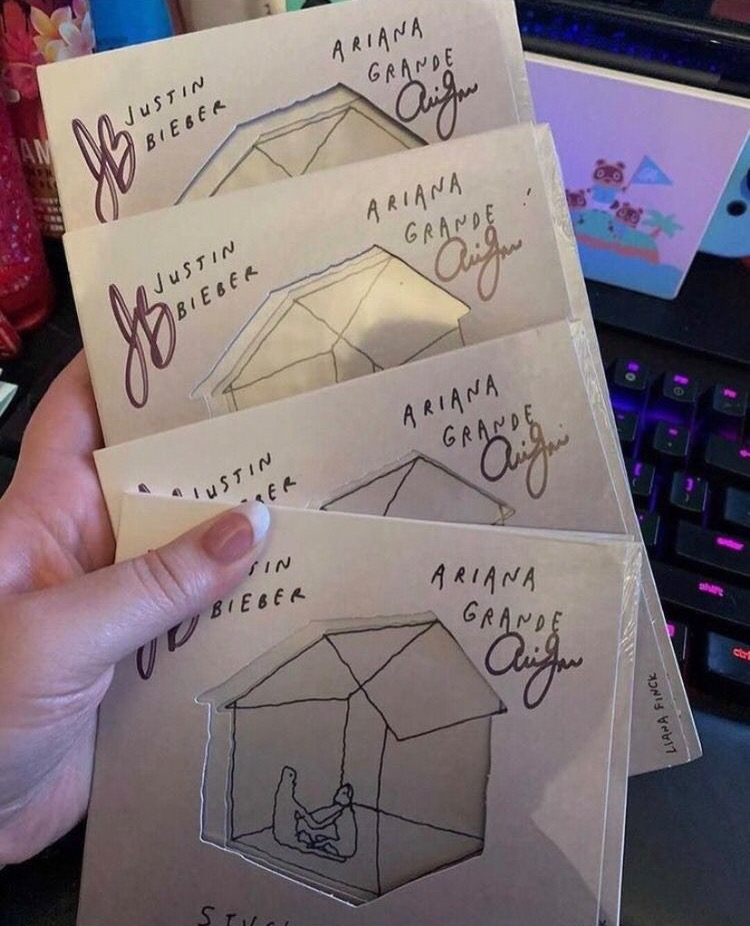 JB
JUSTIN
BIEBER
ARIANA
GRANDE
JB
JUSTIN
BIEBER
ARIANA
GRANDE
JUSTIN
ARIANA
GRANDE
BIEBER
ARIANA
GRANDE
LIANA FINCK
enter
shift
ctrl